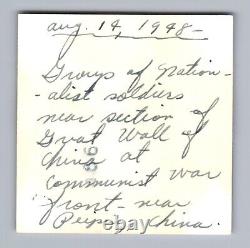 Aug. 14, 1948-
Groups of Nation-
-alist soldiers
near section of
Great Wall of
China at
Communist war
front - near
Peiping, China.
ebay